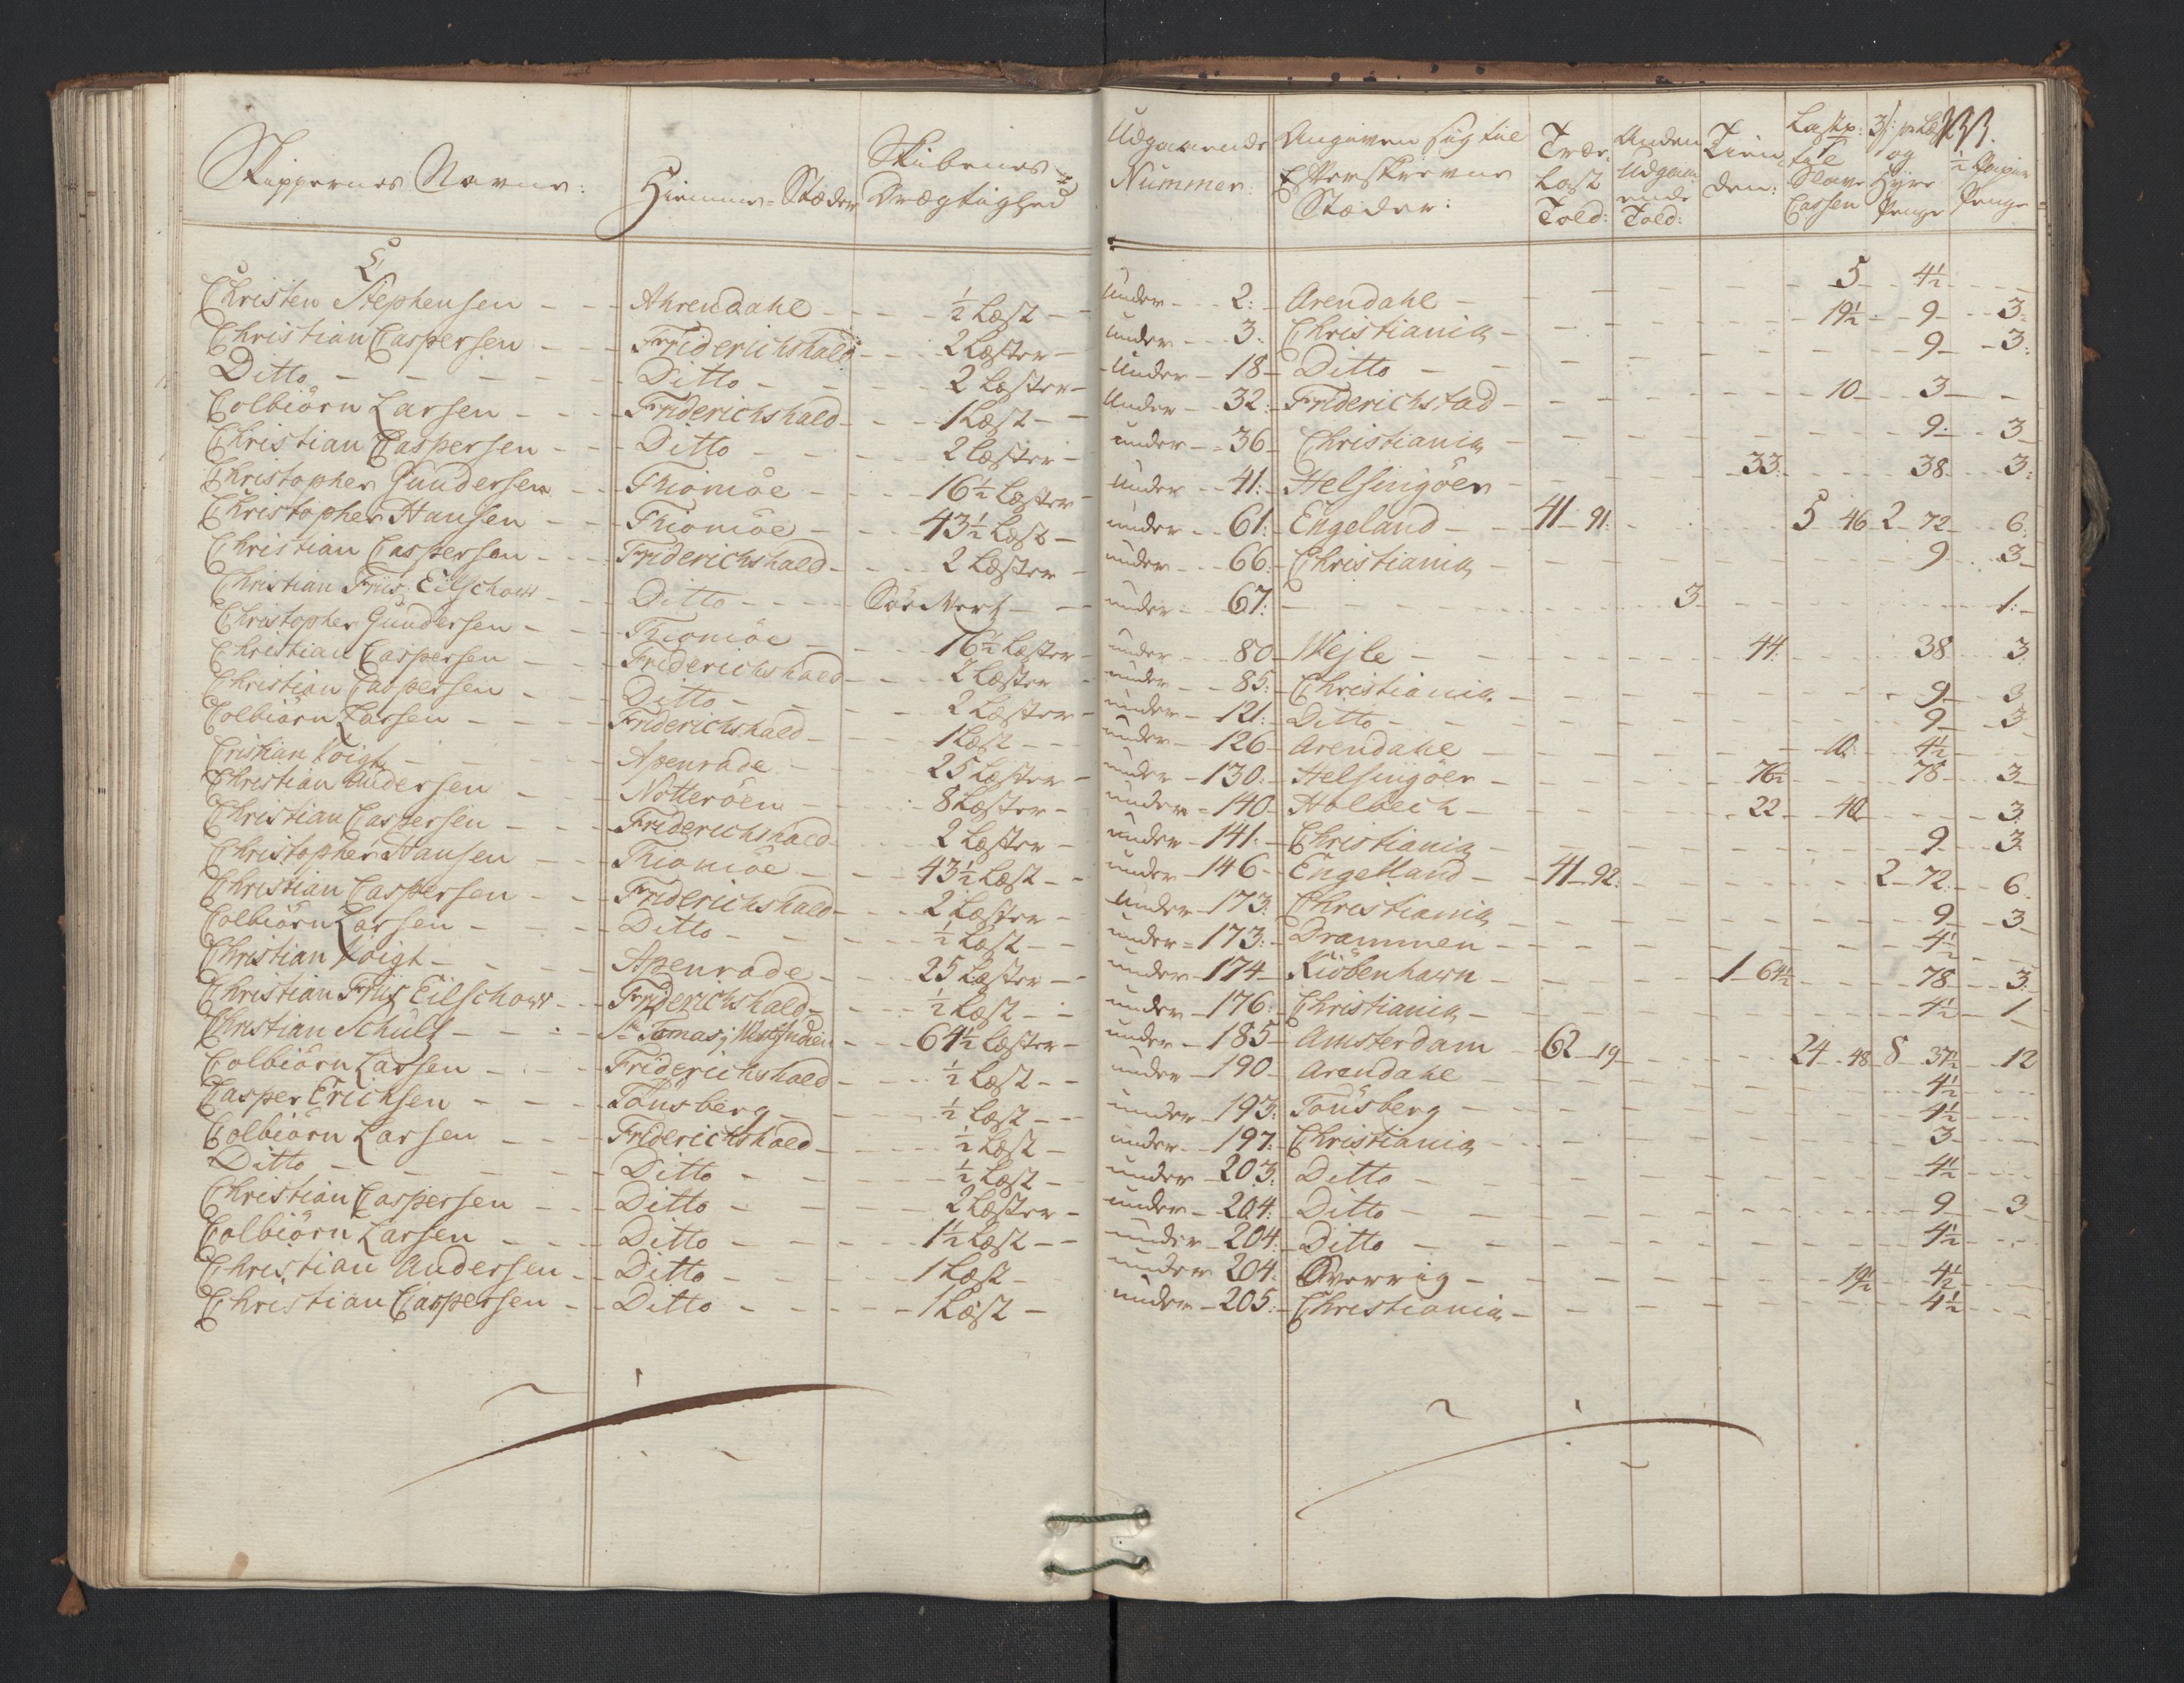 Skippernes Navne: Hiemme-Stæder Skibenes Drægtighed Udgaaende Nummer: Angiven sig til Efterskrevne Stæder: Træ-Last Told: Anden Udgaaende Told: Tienden: Lastp: til Slave Cassen og Hyre Penge ½ Penge
C
Christen Stephensen - - Ahrendahl - - ½ Læst - under - 2: Arendahl - 5 - 4½
Christian Caspersen - - Friderichshald - - 2 Læster - under - 3. Christiania - 19½ - 9 - 3:
Ditto - - Ditto - - 2 Læster - under - 18 - Ditto - 9 - 3:
Colbiörn Larsen - - Friderichshald - - 1 Læst - under - 32: Friderichstad - 10 - 3 -
Christian Caspersen - - Ditto - - 2 Læster - under - 36 Christiania - 9: - 3
Christopher Gundersen - - Thiomöe - - 16½ Læster - under - 41: Helsingöer - 33: - 38 - 3:
Christopher Hansen - - Thiomöe - - 43½ Læst - under - 61: Engeland - 41 - 91: 5 46 2 - 72 - 6:
Christian Caspersen - - Friderichshald - - 2 Læster - under - 66: Christiania - 9 - 3
Christian Friis Eilschow - - Ditto - - Söe Vert - under - 67: - 3 - 1:
Christopher Gundersen - - Thiomöe - - 16½ Læster - under - 80 - Wejle - 44: - 38 3
Christian Caspersen - - Friderichshald - - 2 Læster - under - 85: Christiania - 9 - 3
Christian Caspersen - - Ditto - - 2 Læster - under - 121: Ditto - 9 - 3
Colbiörn Larsen - - Friderichshald - - 1 Læst - under - 126 - Arendahl - 10: - 4½
Cristian Voigt - - Apenrade - - 25 Læster - under - 130: Helsingöer - 76½ - 78 - 3
Christian Andersen - - Nötteröen - - 8 Læster - under - 140 - Holbech - 22 - 40 - 3
Christian Caspersen - - Friderichshald - - 2 Læster - under - 141: Christiania - 9 - 3
Christopher Hansen - - Thiomöe - - 43½ Læst - under - 146 - Engelland - 41 - 92: 2 - 72 - 6
Christian Caspersen - - Friderichshald - - 2 Læster - under - 173: Christiania - 9 - 3
Colbiörn Larsen - - Ditto - - ½ Læst - under - 173: Drammen - 4½
Christian Voigt - - Apenrade - - 25 Læster - under - 174 - Kiöbenhavn - 1 - 64½ - 78 - 3
Christian Friis Eilschow - - Friderichshald - - ½ Læst - under - 176: Christiania - 4½ - 1
Christian Schült - - St Tomas i VestIndien - - 64½ Læster - under - 185 - Amsterdam - 62 - 19 - 24 - 48 8 - 37½ - 12
Colbiörn Larsen - - Friderichshald - - ½ Læst - under - 190 - Arendahl - 4½
Casper Erichsen - - Tönsberg - - ½ Læst - under - 193: Tönsberg - 4½
Colbiörn Larsen - - Friderichshald - - ½ Læst - under - 197: Christiania - 3
Ditto - - Ditto - - ½ Læst - under - 203: Ditto - 4½
Christian Caspersen - - Ditto - - 2 Læster - under - 204: Ditto - 9 - 3
Colbiörn Larsen - - Ditto - - 1½ Læst - under - 204: Ditto - 4½
Christian Andersen - - Ditto - - 1 Læst - under 204: Sverrig - 19½ - 4½
Christian Caspersen - - Ditto - - 1 Læst - under - 205: Christiania - 4½